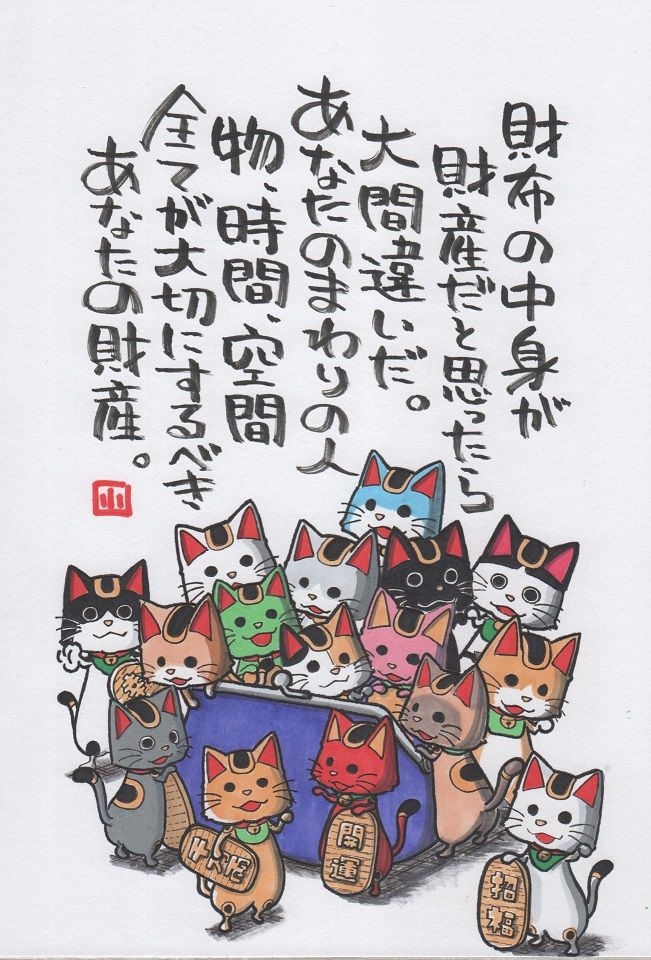 財布の中身が
財産だと思ったら
大間違いだ。
あなたのまわりの人
物、時間、空間
全てが大切にするべき
あなたの財産。
山
開運
招福